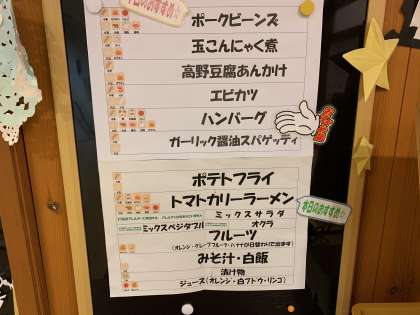 本日のおすすめ
ポークビーンズ
玉こんにゃく煮
高野豆腐あんかけ
エビカツ
ハンバーグ
ガーリック醤油スパゲッティ
ポテトフライ
トマトカリーラーメン
本日のおすすめ
ミックスサラダ
ミックスベジタブル オクラ
フルーツ
(オレンジ・グレープフルーツ・バナナが日替わりで出ます)
みそ汁・白飯
漬け物
ジュース(オレンジ・白ブドウ・リンゴ)